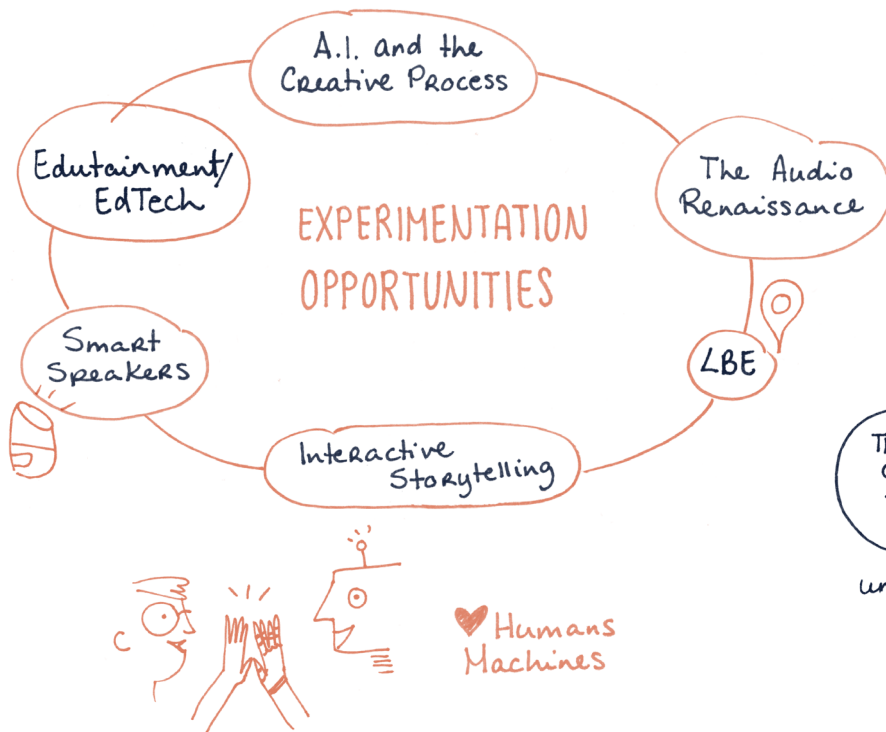 A.I. and the
Creative Process
Edutainment/
EdTech
The Audio
Renaissance
EXPERIMENTATION
OPPORTUNITIES
Smart
Speakers
LBE
Interactive
Storytelling
Humans
Machines